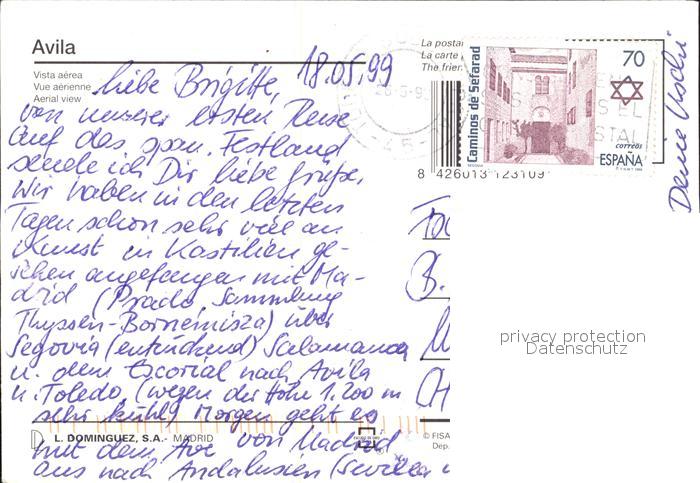 Avila
Vista aérea
Vue aérienne
Aerial view
18.05.99
Liebe Brigitte,
von unserer ersten Reise
auf das span. Festland
sende ich Dir liebe Grüße.
Wir haben in den letzten
Tagen schon sehr viel an
Kunst in Kastilien ge-
sehen angefangen mit Ma-
drid (Prado Sammlung
Thyssen-Bornemisza) über
Segovia (entzückend) Salamanca
u. dem Escorial nach Avila
u. Toledo, (wegen der Höhe 1.200 m
sehr kühl) Morgen geht es
mit dem Ave von Madrid
aus nach Andalusien (Sevilla u
Deine Uschi
La postal
La carte
The frien
Caminos de Sefarad
70
correos
ESPAÑA
8 426013 123109
B.
privacy protection
Datenschutz
L. DOMINGUEZ, S.A.- MADRID
© FISA
Dep.